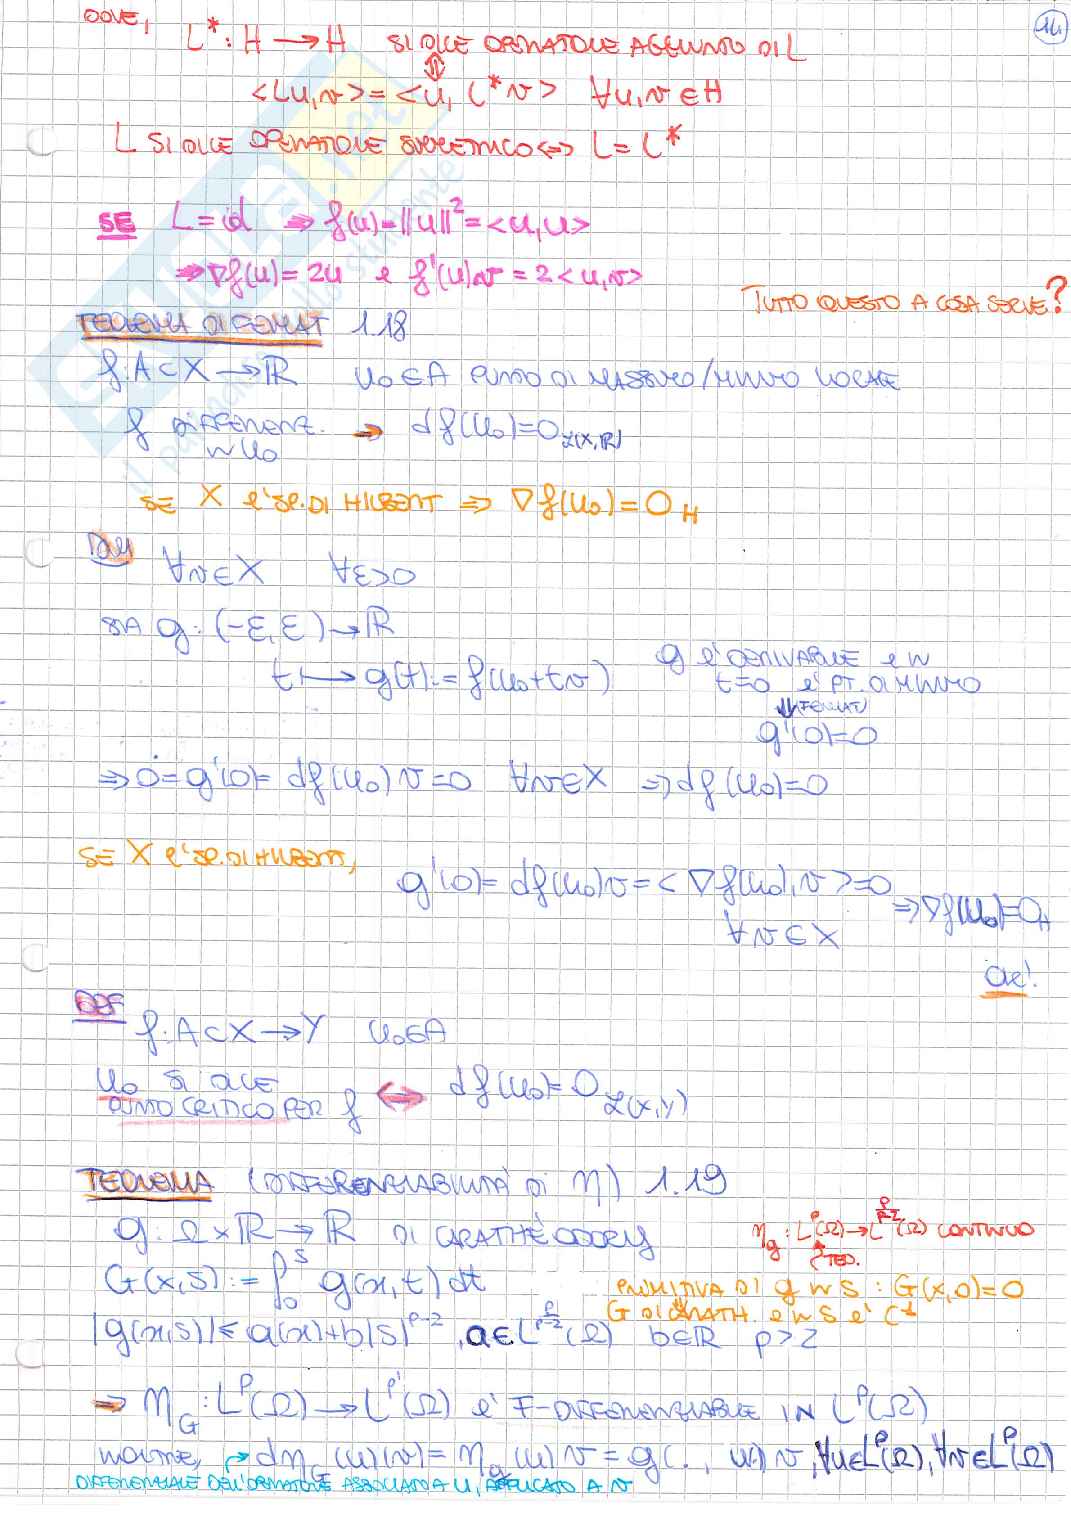 DOVE,
14
L* : H → H SI DICE OPERATORE AGGIUNTO DI L
⇕
<Lu,v> = <u, L*v> ∀u,v ∈ H
L SI DICE OPERATORE SIMMETRICO <=> L = L*
SE L = id ⇒ f(u) = ||u||² = <u,u>
⇒ ∇f(u) = 2u e f'(u)v = 2<u,v>
TUTTO QUESTO A COSA SERVE?
TEOREMA DI FERMAT 1.18
f: A ⊂ X → ℝ u₀ ∈ A PUNTO DI MASSIMO/MINIMO LOCALE
f DIFFERENZ. IN u₀ ⇒ df(u₀) = 0_ℒ(X,ℝ)
SE X e' SP. DI HILBERT ⇒ ∇f(u₀) = 0_H
DIM
∀v ∈ X ∀ε>0
SIA g: (-ε,ε) → ℝ
t ↦ g(t) := f(u₀+tv)
g e' DERIVABILE e IN
t=0 e' PT. DI MINIMO
⇓ (FERMAT)
g'(0)=0
⇒ 0 = g'(0) = df(u₀)v = 0 ∀v ∈ X ⇒ df(u₀) = 0
SE X e' SP. DI HILBERT,
g'(0) = df(u₀)v = <∇f(u₀),v> = 0 ⇒ ∇f(u₀) = 0_H
∀v ∈ X
OK!
DEF
f: A ⊂ X → Y u₀ ∈ A
u₀ SI DICE
PUNTO CRITICO PER f ⇔ df(u₀) = 0_ℒ(X,Y)
TEOREMA (DIFFERENZIABILITÀ DI η) 1.19
g: Ω × ℝ → ℝ DI CARATHÈODORY
η_g : L^p(Ω) → L^{p/(p-2)}(Ω) CONTINUO
↑ TEO.
G(x,s) := ∫₀^s g(x,t) dt
PRIMITIVA DI g IN s : G(x,0)=0
G DI CARATH. e IN s e' C¹
|g(x,s)| ≤ a(x)+b|s|^{p-2}, a ∈ L^{p/(p-2)}(Ω) b ∈ ℝ p>2
⇒ η_G : L^p(Ω) → L^{p'}(Ω) e' F-DIFFERENZIABILE IN L^p(Ω)
INOLTRE, dη_G(u)(v) = η_g(u)v = g(·, u(·))v, ∀u ∈ L^p(Ω), ∀v ∈ L^p(Ω)
DIFFERENZIALE DELL'OPERATORE ASSOCIATO A u, APPLICATO A v